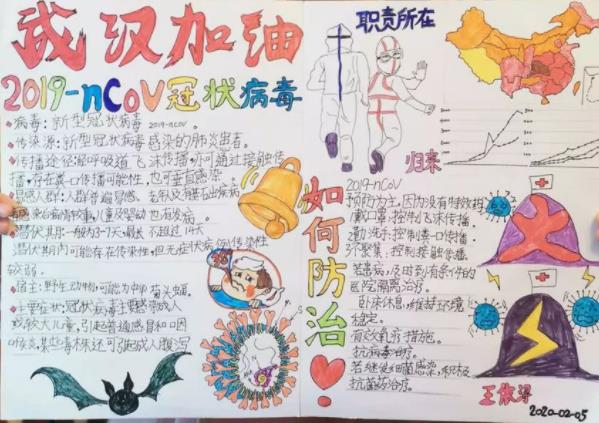 武汉加油
2019-nCoV冠状病毒
病毒：新型冠状病毒 2019-nCoV。
传染源：新型冠状病毒感染的肺炎患者。
传播途径：经呼吸道飞沫传播，亦可通过接触传
播，存在粪口传播可能性，也可垂直感染。
易感人群：人群普遍易感。老年人及有基础疾病
者感染后病情较重，儿童及婴幼儿也有发病。
潜伏期：一般为3-7天，最长不超过14天
潜伏期内可能存在传染性，但无症状病例传染性
较弱。
宿主：野生动物，可能为中华菊头蝠。
主要症状：冠状病毒主要感染成人
或较大儿童，引起普通感冒和咽
喉炎，某些毒株还可引起成人腹泻
职责所在
归来
如何防治！
2019-nCoV
预防为主，因为没有特效药
戴口罩：控制飞沫传播。
勤洗手：控制粪口传播。
不聚集：控制接触传播。
若患病，及时到有条件的
医院隔离治疗。
卧床休息，维持环境
稳定。
有效氧疗措施。
抗病毒治疗。
若继发细菌感染，积极
抗菌药治疗。
2020-02-05